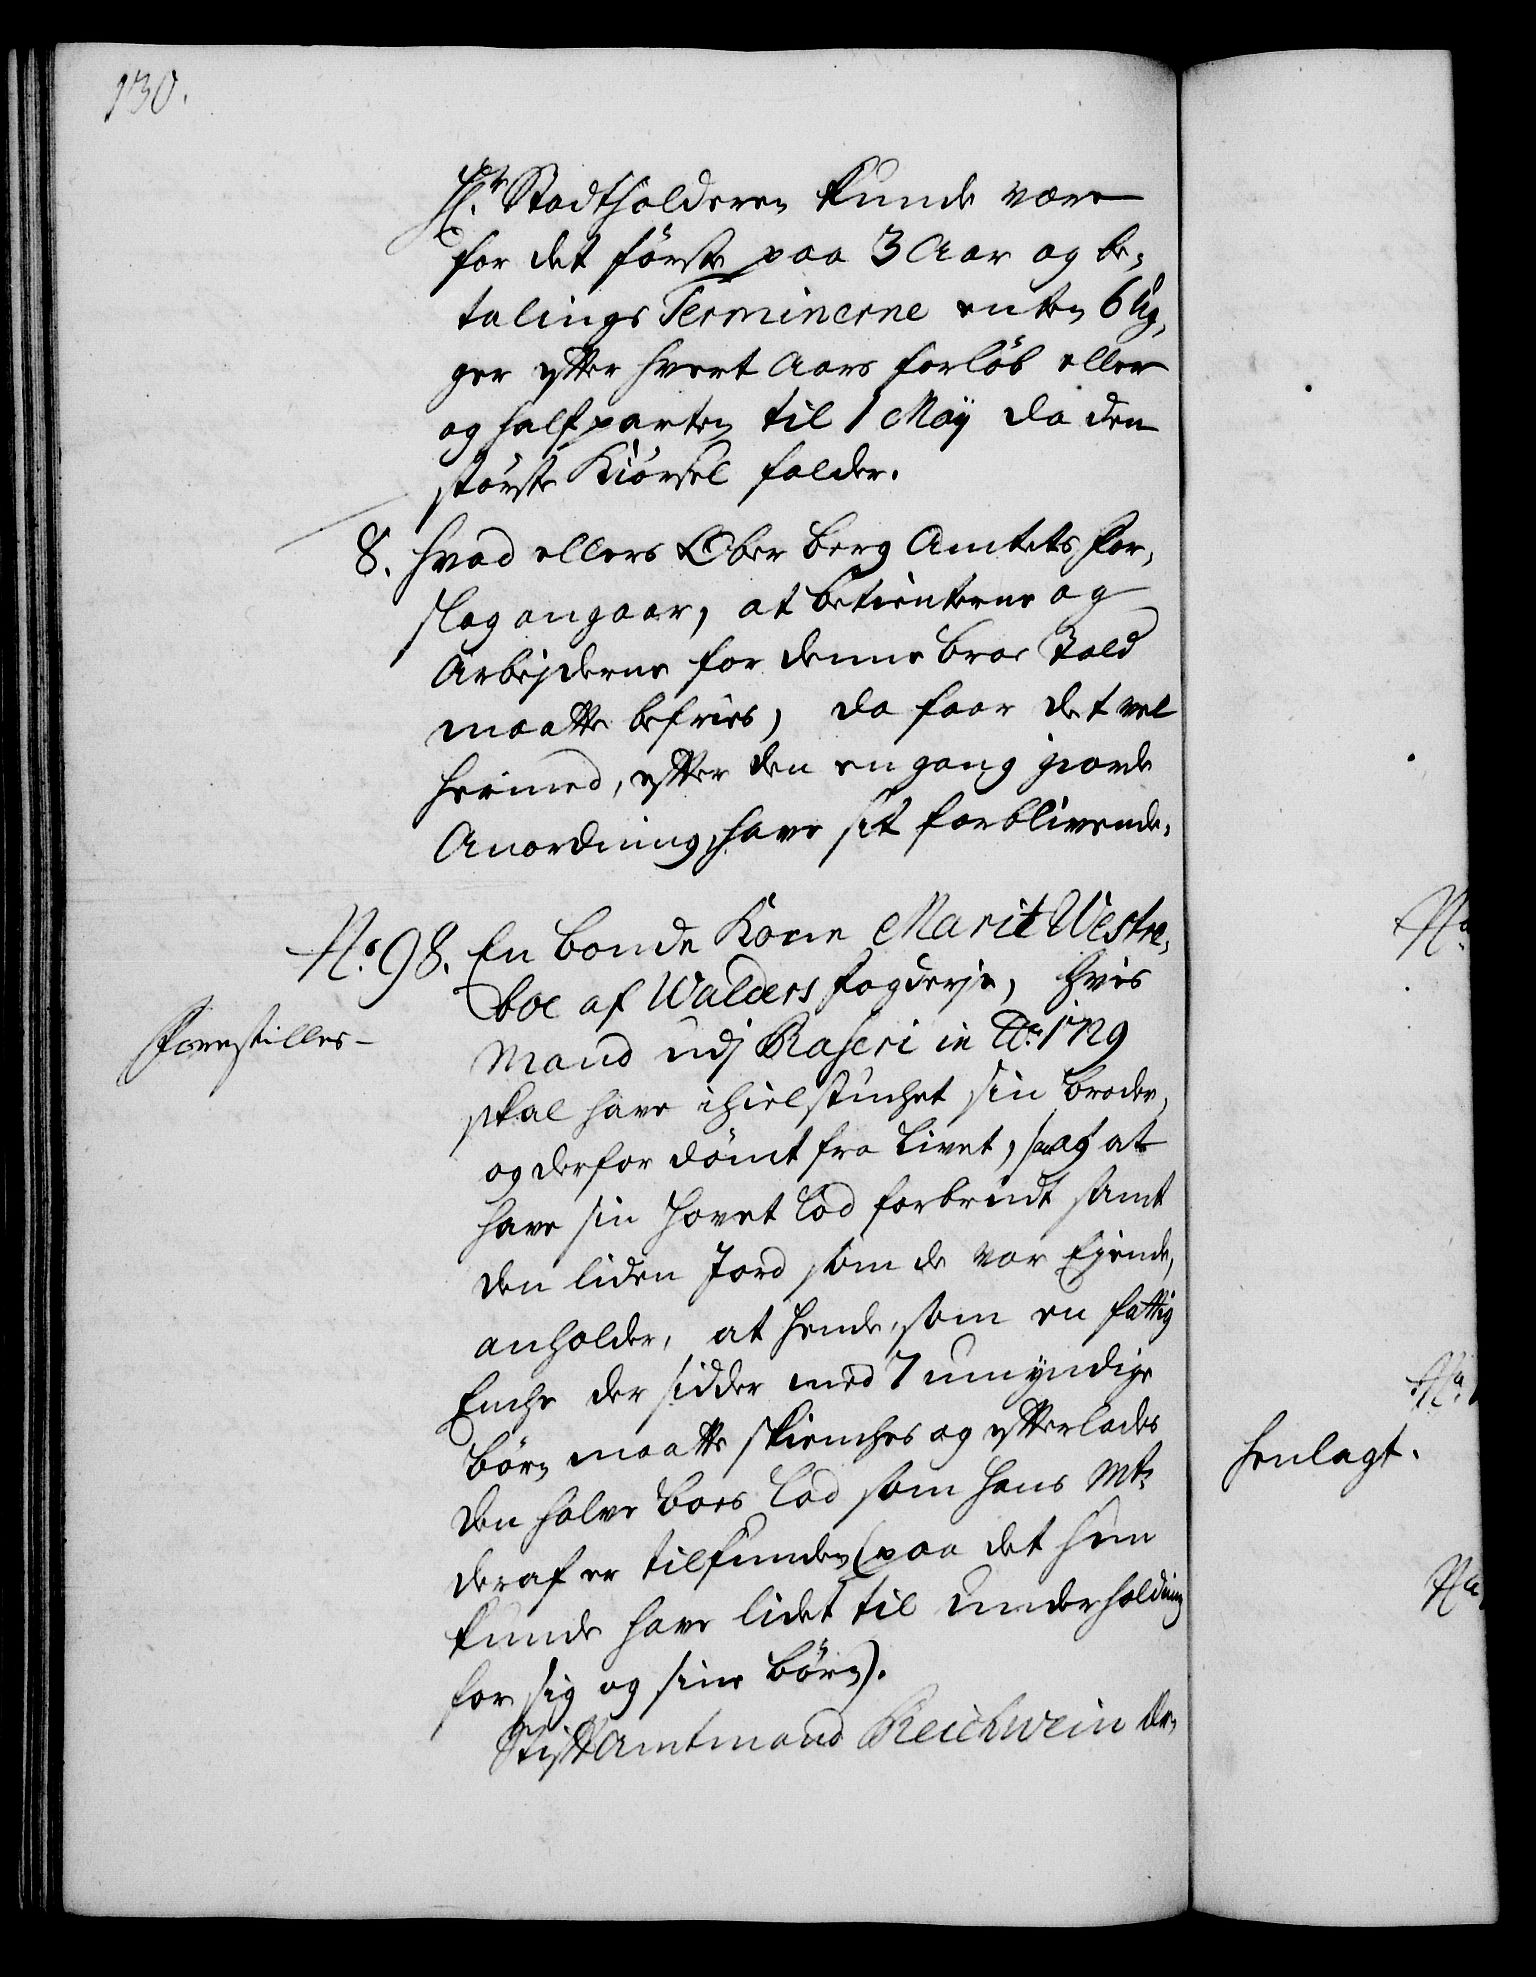 130.
Hr. Stadtholderen kunde være
for det förste paa 3 Aar og be-
talings Terminerne enten 6 Ug-
ger efter hvert Aars forlöb eller
og halfparten til 1 Maÿ da den
störste Kiörsel falder.
8. Hvad ellers Ober Berg Amtets for-
slag angaar, at betienterne og
Arbejderne for denne broe Told
maatte befries, da faar det vel
hermed, efter den engang giorde
Anordning, have sit forblivende.
No. 98. En bonde Kone Marit Westre-
boe af Walders fogderje, hvis
Forestilles
Mand udj Raseri in Ao. 1729
skal have ihielstuchet sin broder,
og derfor dömt fra livet, saa og at
have sin hovet lod forbrudt samt
den liden Jord som de var Ejende,
anholder, at hende, som en fattig
Enche der sidder med 7 umyndige
börn maatte skienches og efterlades
den halve boes lod som hans Mt.
deraf er tilfunden (paa det hun
kunde have lidet til underholding
for sig og sine börn).
Stiftamtmand Reichwein er-
Henlagt.